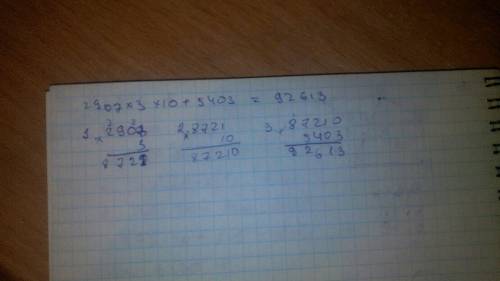 2907 × 3 × 10 + 5403 = 92613
1. × 2907 2. × 8721 3. + 87210
3 10 5403
8721 87210 92613